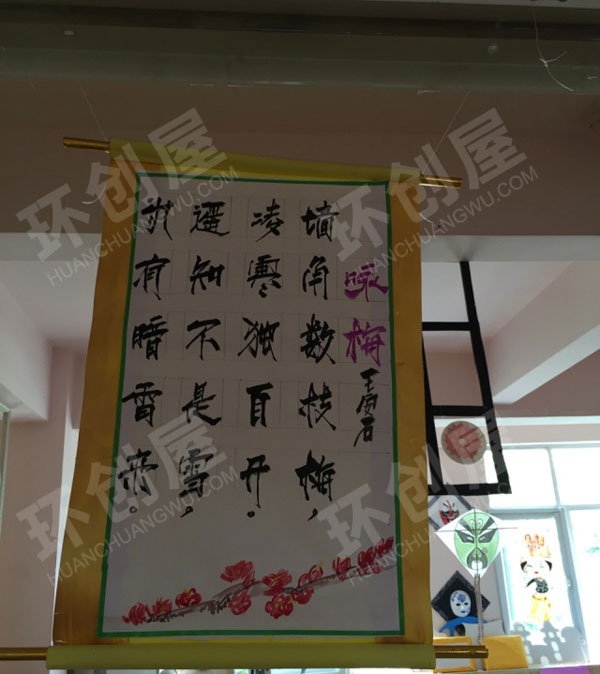 咏梅
王安石
墙角数枝梅，
凌寒独自开。
遥知不是雪，
为有暗香来。
环创屋
HUANCHUANGWU.COM
环创屋
HUANCHUANGWU.COM
环创屋
HUANCHUANGWU.COM
环创屋
HUANCHUANGWU.COM